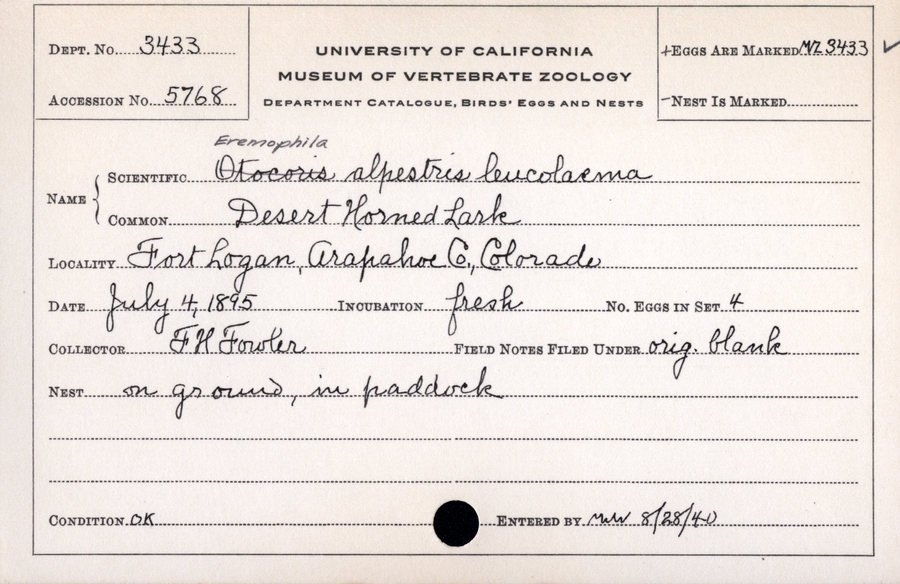 Dept. No. 3433
UNIVERSITY OF CALIFORNIA
MUSEUM OF VERTEBRATE ZOOLOGY
Department Catalogue, Birds' Eggs and Nests
+Eggs Are Marked MVZ 3433 ✓
Accession No. 5768
-Nest Is Marked
Eremophila
Name { Scientific Otocoris alpestris leucolaema
Common Desert Horned Lark
Locality Fort Logan, Arapahoe Co., Colorado
Date July 4, 1895 Incubation fresh No. Eggs in Set 4
Collector F H Fowler Field Notes Filed Under orig. blank
Nest on ground, in paddock
Condition OK Entered by mw 8/28/40